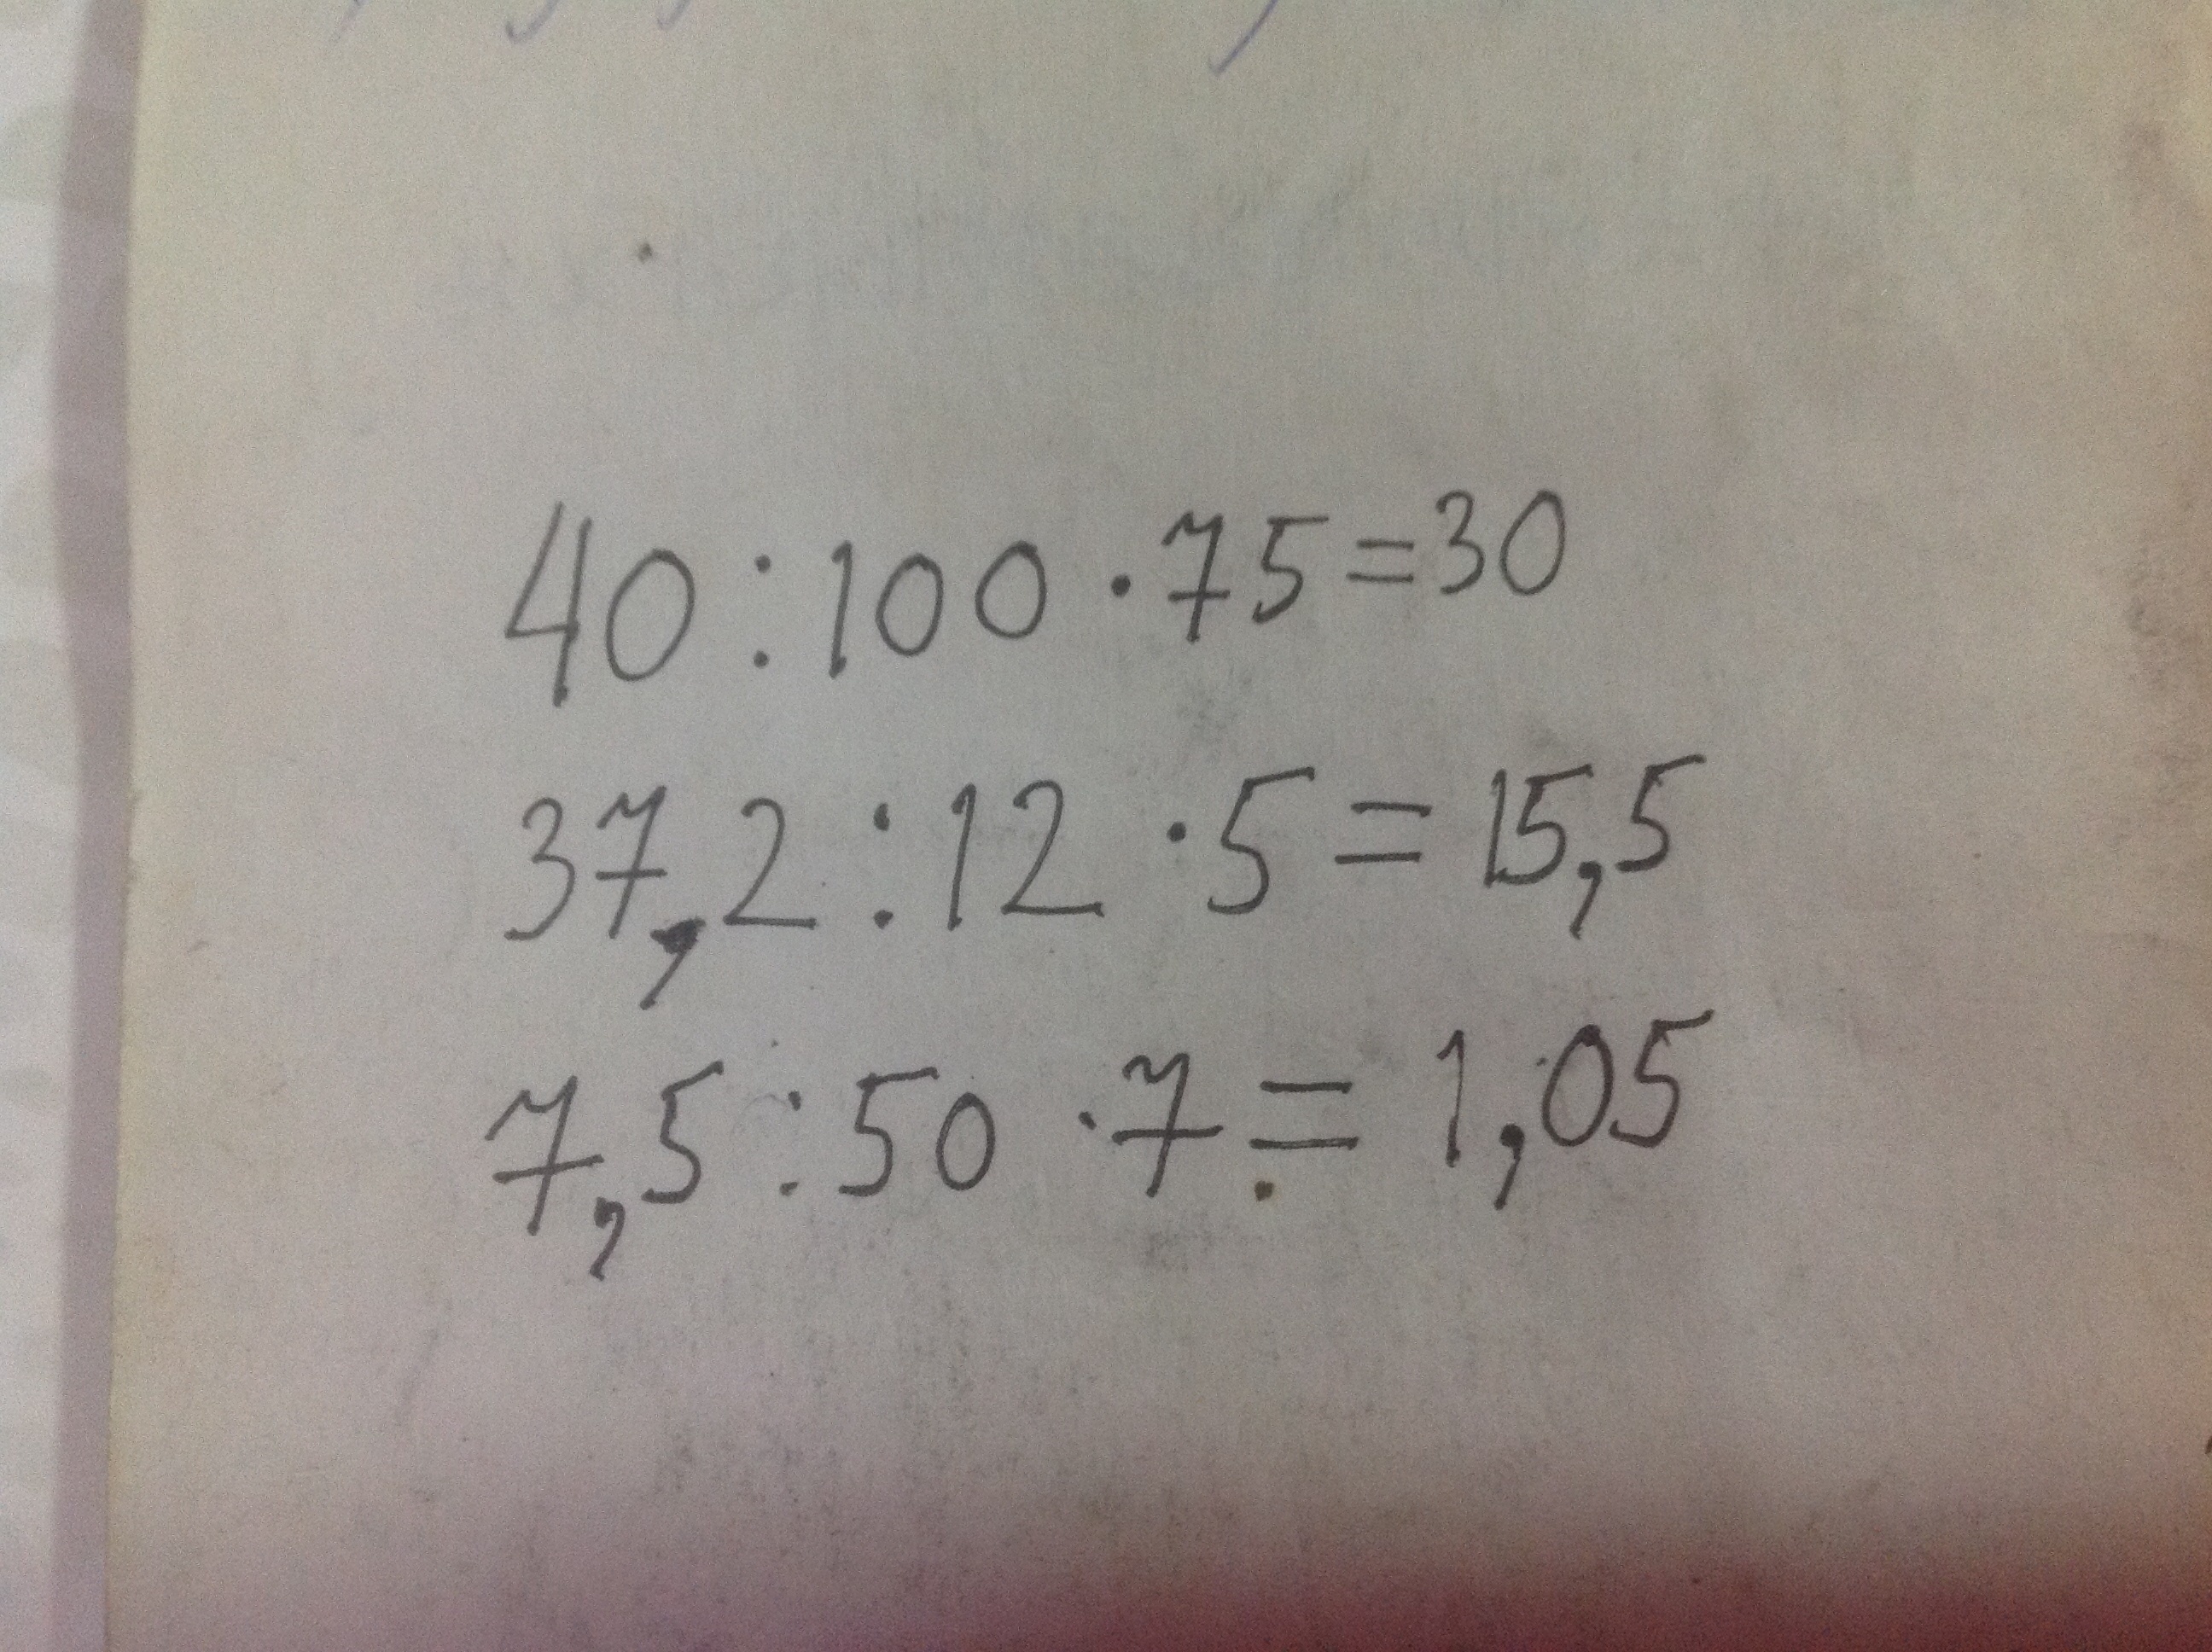 40:100·75=30
37,2:12·5=15,5
7,5:50·7=1,05